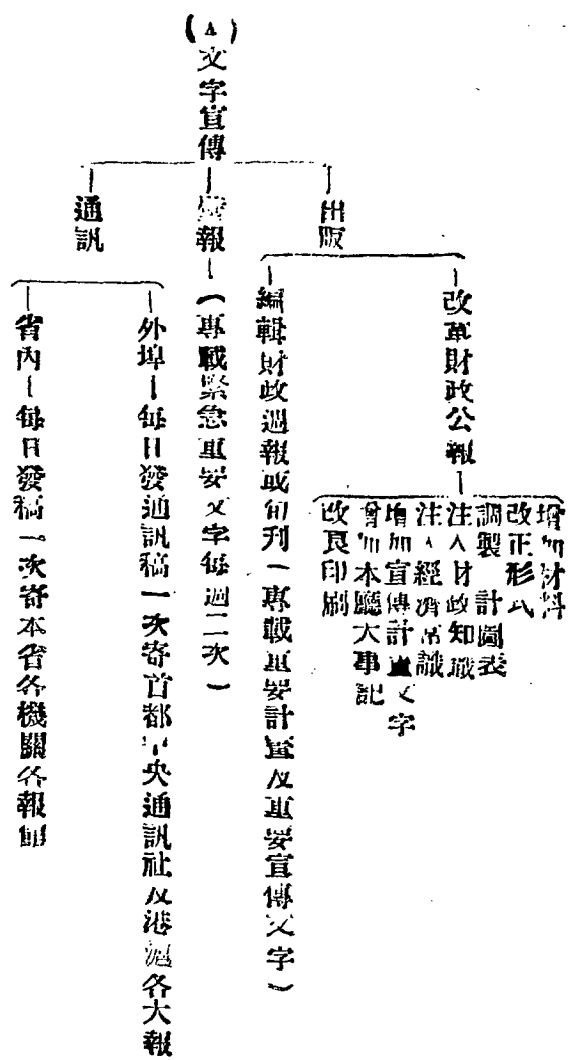 (A)文字宣傳
出版
改革財政公報
增加材料
改正形式
調製 計圖表
注入財政知識
注入經濟常識
增加宣傳計畫文字
增加本廳大事記
改良印刷
編輯財政週報或旬刊(專載重要計畫及重要宣傳文字)
報(專載緊急重要文字每週二次)
通訊
外埠-每日發通訊稿一次寄首都中央通訊社及港滬各大報
省內-每日發稿一次寄本省各機關各報館